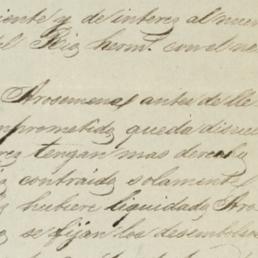 iente y de interes al nuev
del Rio herm.^s con el ne
Arosemena antes de lle
mprometido queda disuel
rez tengan mas derecho
contraido solamente
hubiere liquidado Aro
se fijan los desembols